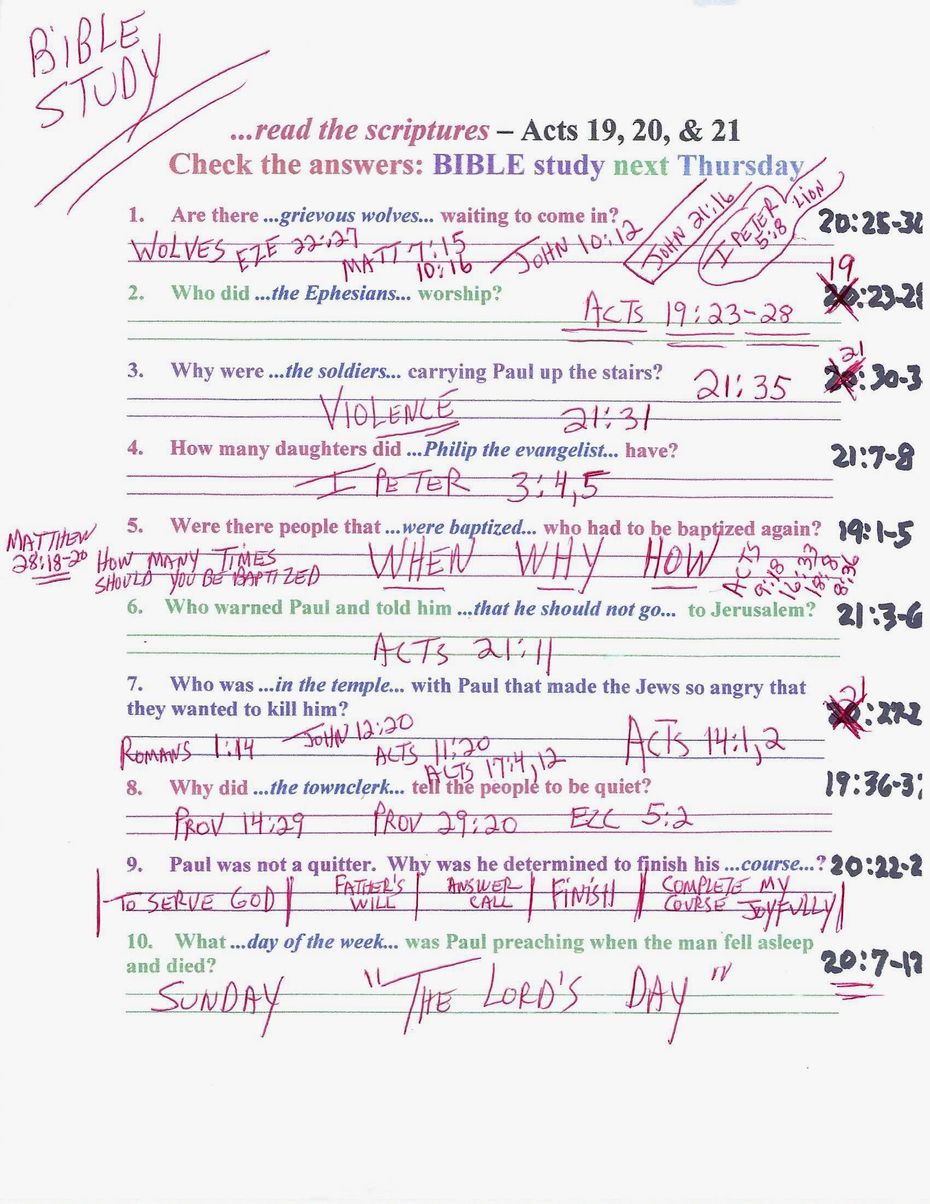 BIBLE
STUDY
...read the scriptures – Acts 19, 20, & 21
Check the answers: BIBLE study next Thursday
1. Are there ...grievous wolves... waiting to come in?
20:25-30
WOLVES EZE 22:27 MATT 7:15 JOHN 10:12 JOHN 21:16 I PETER LION
10:16 5:8
2. Who did ...the Ephesians... worship?
19:23-28
ACTS 19:23-28
3. Why were ...the soldiers... carrying Paul up the stairs?
21:30-3
21:35
VIOLENCE 21:31
4. How many daughters did ...Philip the evangelist... have?
21:7-8
I PETER 3:4,5
5. Were there people that ...were baptized... who had to be baptized again?
19:1-5
MATTHEW
28:18-20
HOW MANY TIMES
SHOULD YOU BE BAPTIZED
WHEN WHY HOW
ACTS
9:18
16:33
18:8
8:36
6. Who warned Paul and told him ...that he should not go... to Jerusalem?
21:3-6
ACTS 21:11
7. Who was ...in the temple... with Paul that made the Jews so angry that
they wanted to kill him?
21:27-2
ROMANS 1:14 JOHN 12:20 ACTS 11:20 ACTS 14:1,2
ACTS 17:4,12
8. Why did ...the townclerk... tell the people to be quiet?
19:36-3
PROV 14:29 PROV 29:20 ECC 5:2
9. Paul was not a quitter. Why was he determined to finish his ...course...?
20:22-2
TO SERVE GOD
FATHER'S
WILL
ANSWER
CALL
FINISH
COMPLETE MY
COURSE JOYFULLY
10. What ...day of the week... was Paul preaching when the man fell asleep
and died?
20:7-12
SUNDAY "THE LORD'S DAY"